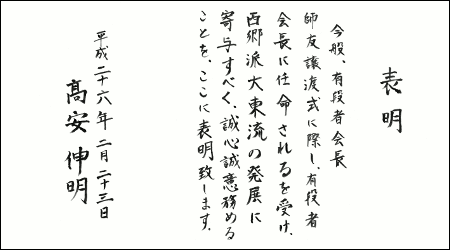 表明
今般、有段者会長
師友譲渡式に際し、有段者
会長に任命されるを受け、
西郷派大東流の発展に
寄与すべく、誠心誠意務める
ことを、ここに表明致します。
平成二十六年二月二十三日
髙安伸明